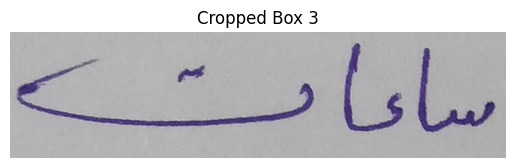 Cropped Box 3
ساعات